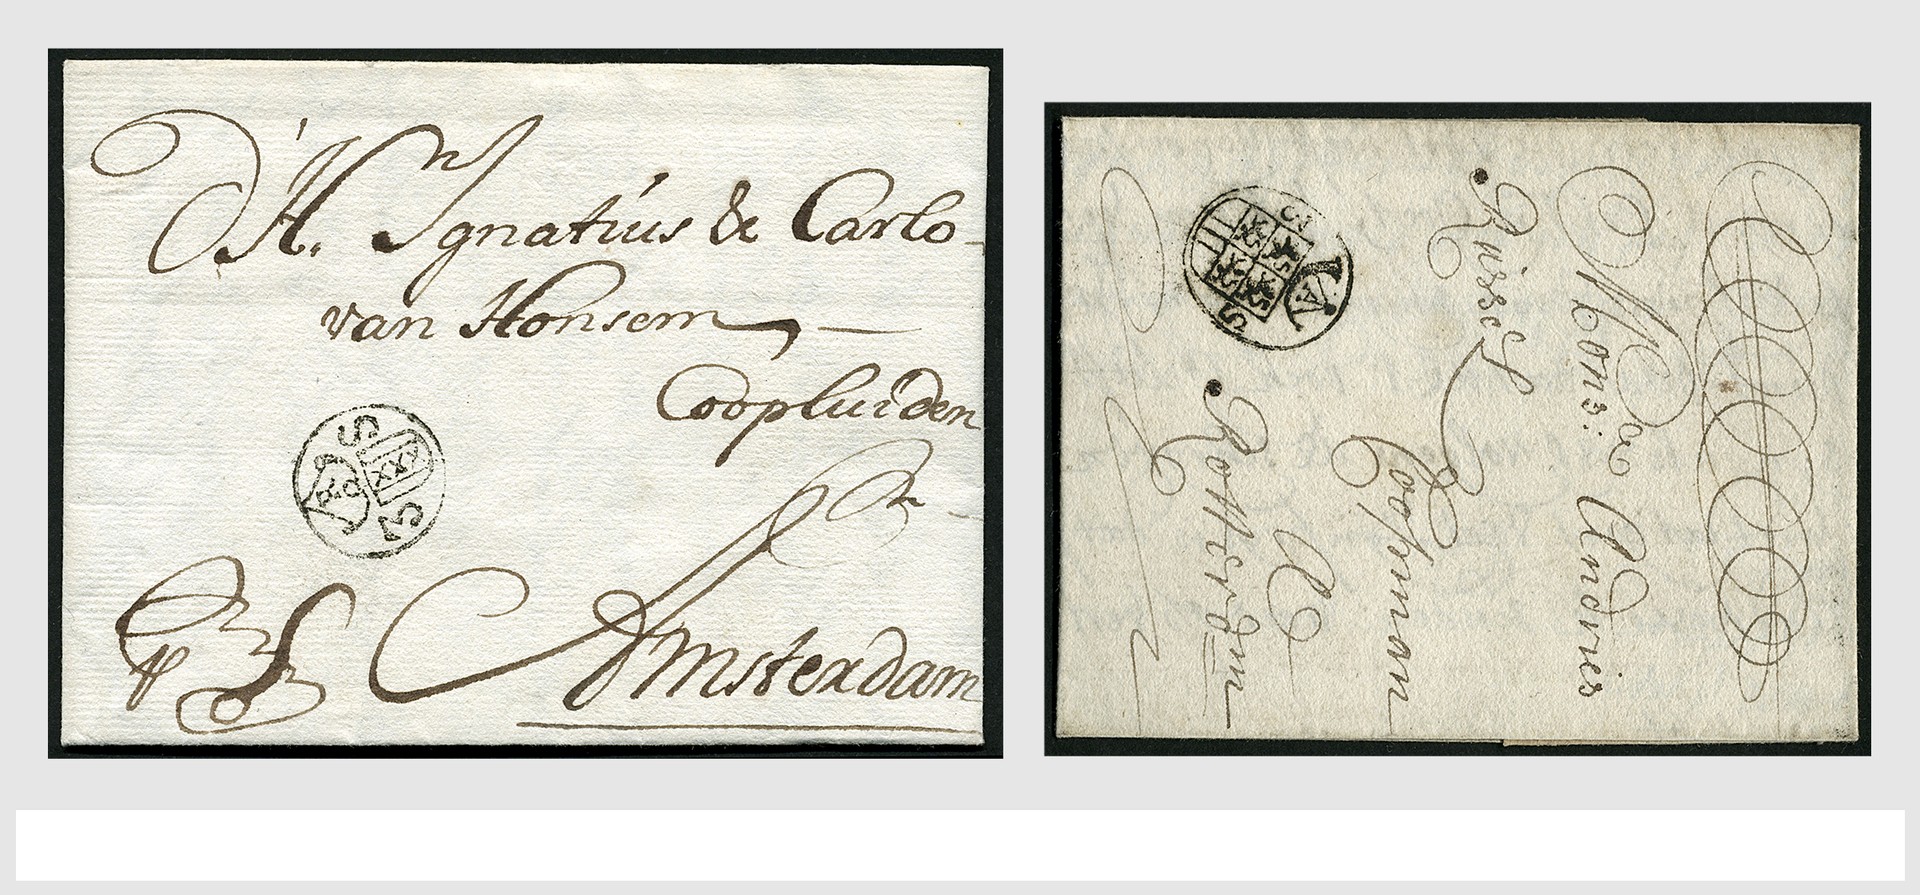 D'Hn Ignatius & Carlo
van Honsem
Coopluiden
Amsterdam
S
XXX
3
Mons: Andries
Rissel
Coopman
A
Rotterdm
3
S